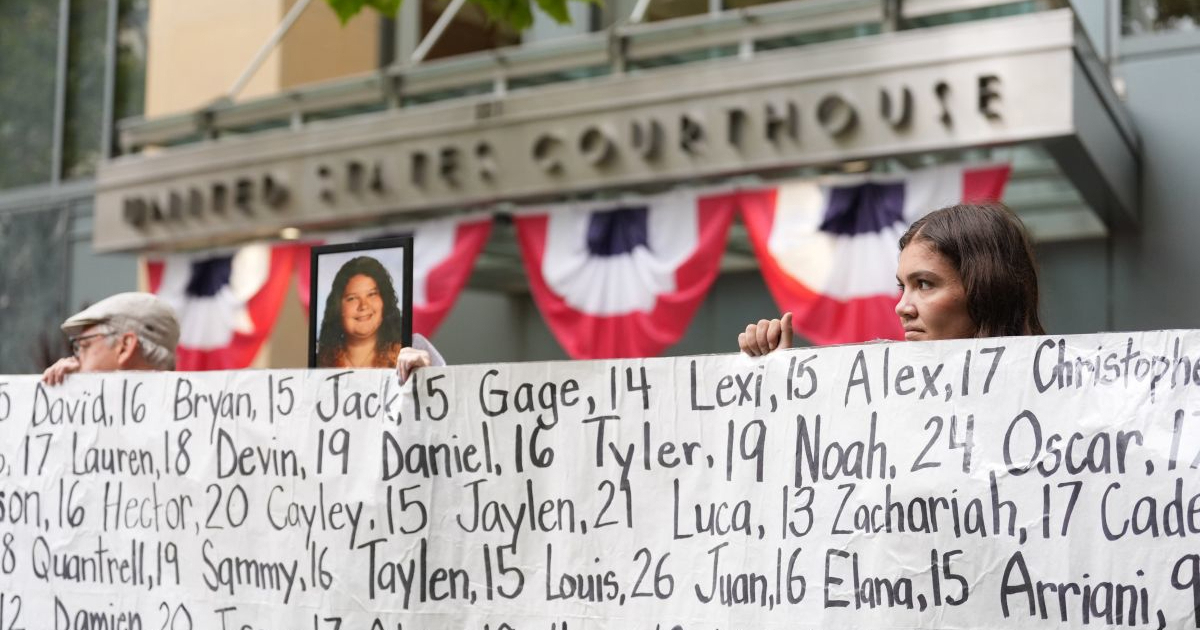 UNITED STATES COURTHOUSE
David, 16 Bryan, 15 Jack, 15 Gage, 14 Lexi, 15 Alex, 17
17 Lauren, 18 Devin, 19 Daniel, 16 Tyler, 19 Noah, 24 Oscar,
16 Hector, 20 Cayley, 15 Jaylen, 21 Luca, 13 Zachariah, 17
8 Quantrell, 19 Sammy, 16 Taylen, 15 Louis, 26 Juan, 16 Elana, 15 Arriani, 9
12 Damien, 20